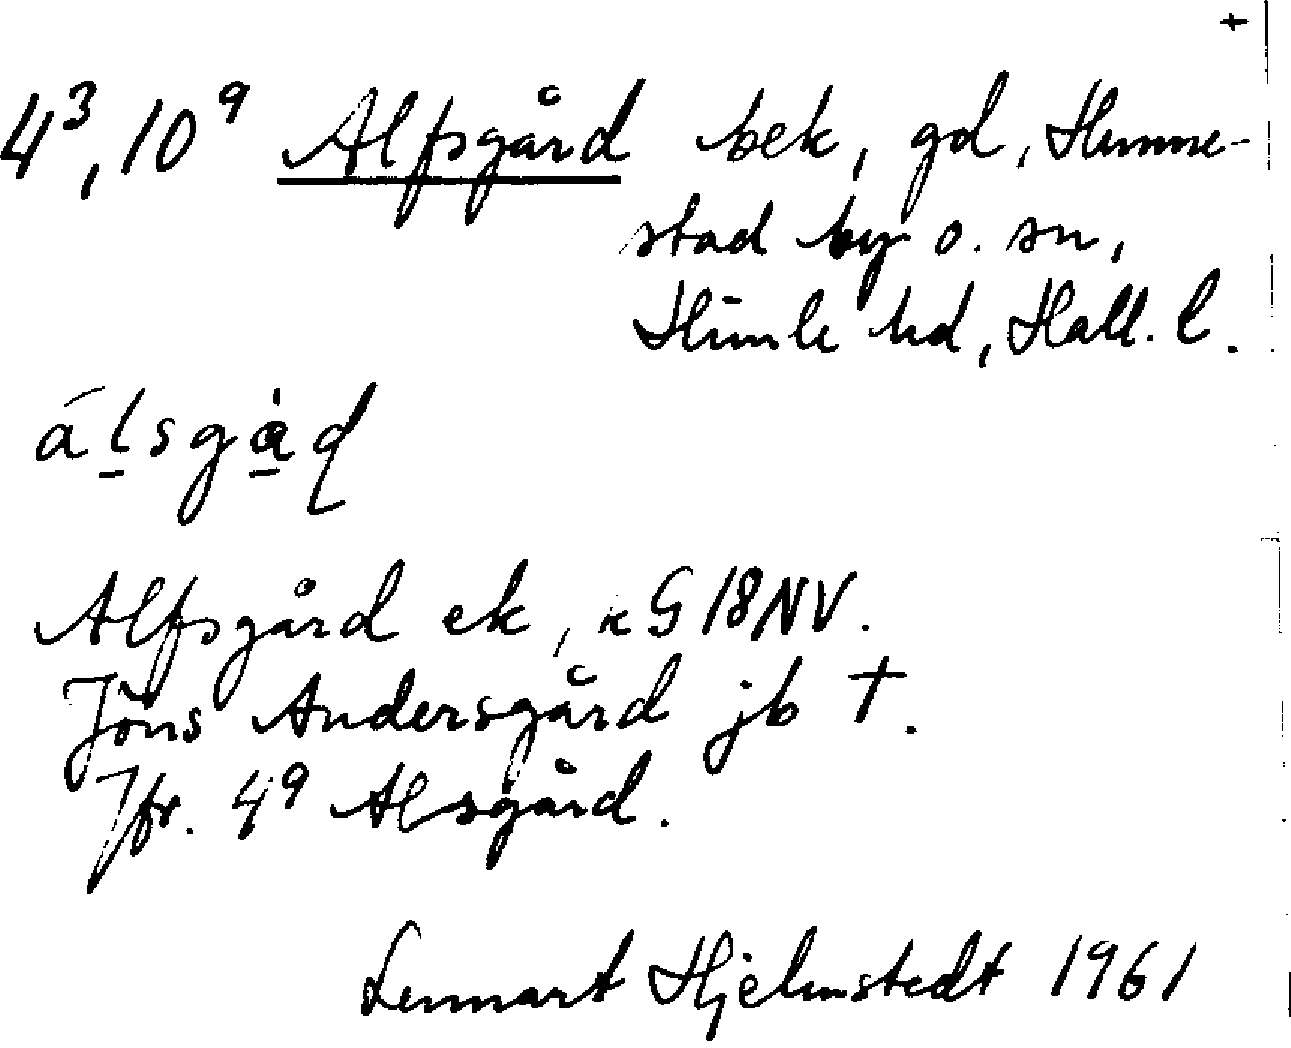 +
4³, 10⁹ Alfsgård bek, gd, Hunne-
stad by o. sn,
Himle hd, Hall. l.
álsgàd
Alfsgård ek, RG 18NV.
Jöns Andersgård jb †.
Jfr. 4⁹ Alsgård.
Lennart Hjelmstedt 1961